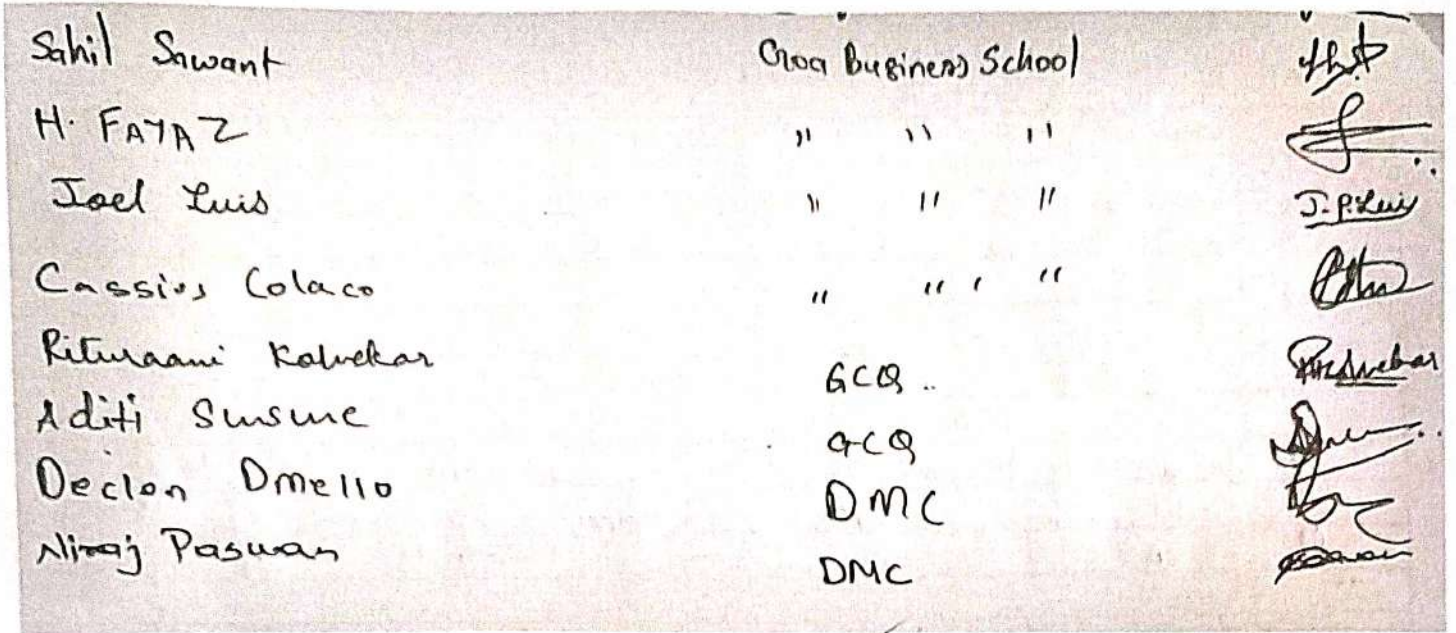 Sahil Sawant Goa Business School
H. FAYAZ " " "
Joel Luis " " " J.P.Luis
Cassius Colaco " " "
Rituraani Kalvekar GCQ ..
Aditi GCQ
Declon Dmello DMC
Niraj Paswan DMC